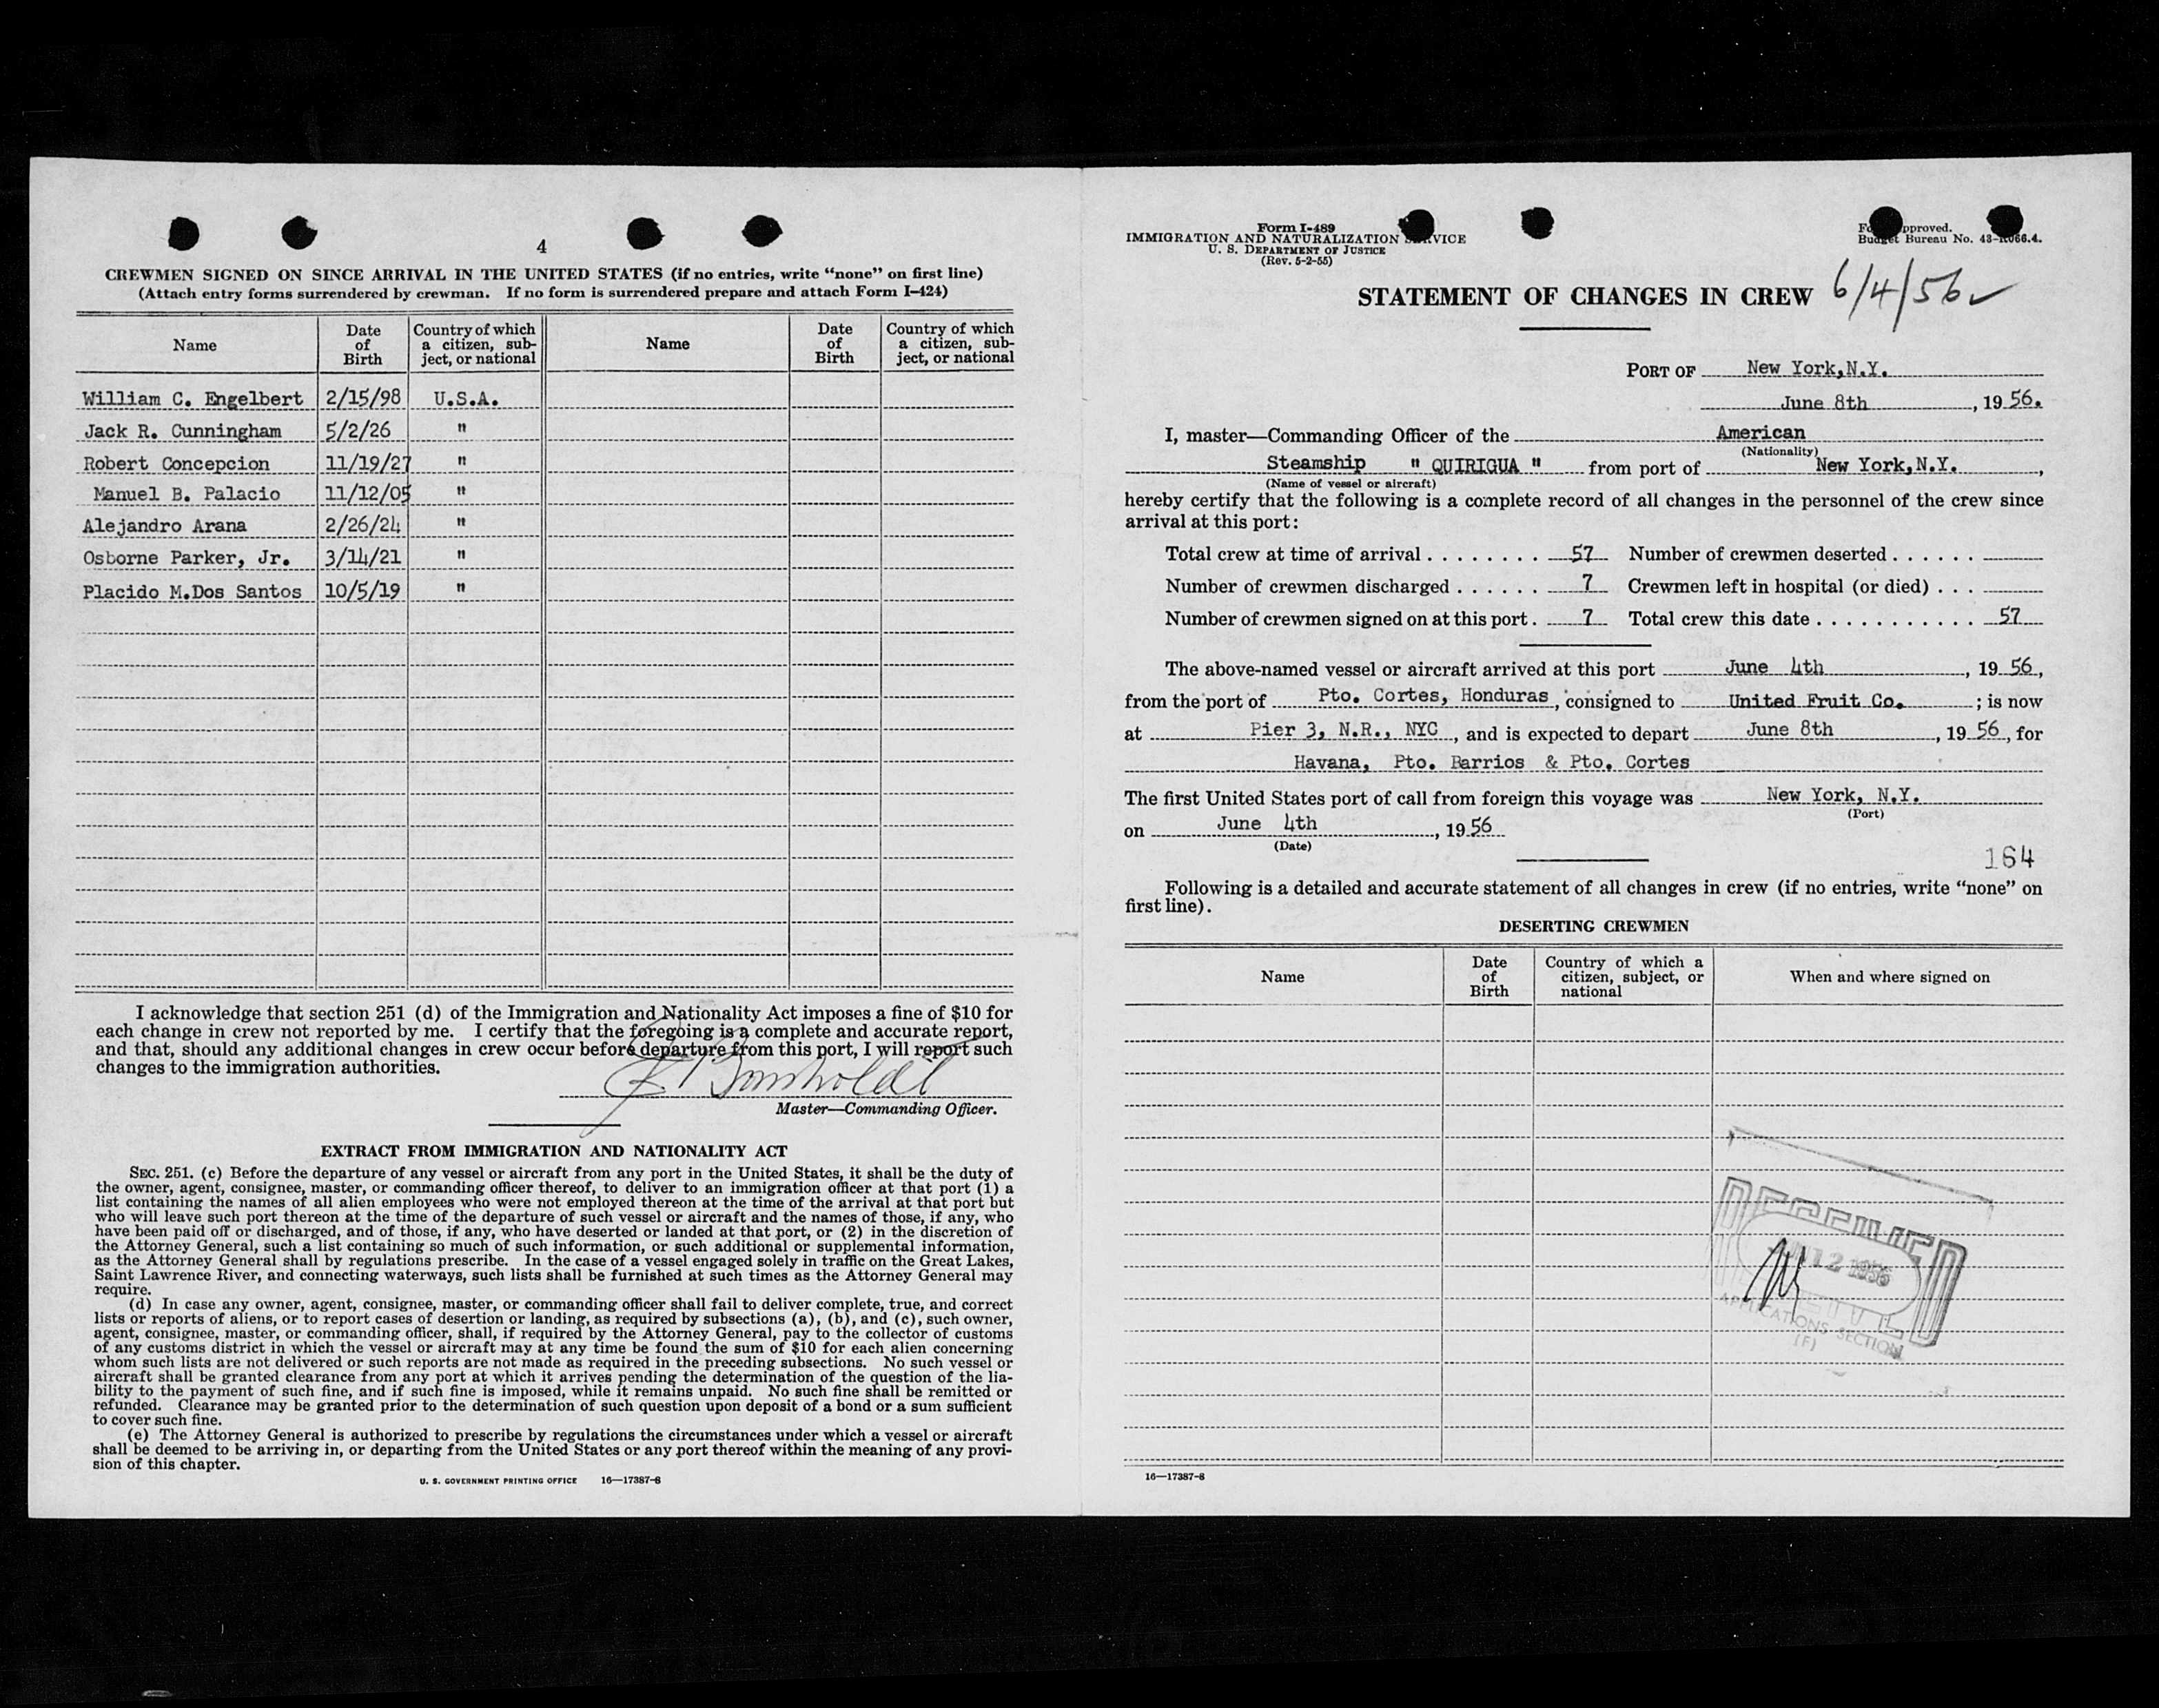 4
CREWMEN SIGNED ON SINCE ARRIVAL IN THE UNITED STATES (if no entries, write “none” on first line)
(Attach entry forms surrendered by crewman. If no form is surrendered prepare and attach Form I-424)
Name Date of Birth Country of which a citizen, subject, or national Name Date of Birth Country of which a citizen, subject, or national
William C. Engelbert 2/15/98 U.S.A.
Jack R. Cunningham 5/2/26 "
Robert Concepcion 11/19/27 "
Manuel B. Palacio 11/12/05 "
Alejandro Arana 2/26/24 "
Osborne Parker, Jr. 3/14/21 "
Placido M.Dos Santos 10/5/19 "
I acknowledge that section 251 (d) of the Immigration and Nationality Act imposes a fine of $10 for
each change in crew not reported by me. I certify that the foregoing is a complete and accurate report,
and that, should any additional changes in crew occur before departure from this port, I will report such
changes to the immigration authorities.
Master—Commanding Officer.
EXTRACT FROM IMMIGRATION AND NATIONALITY ACT
SEC. 251. (c) Before the departure of any vessel or aircraft from any port in the United States, it shall be the duty of
the owner, agent, consignee, master, or commanding officer thereof, to deliver to an immigration officer at that port (1) a
list containing the names of all alien employees who were not employed thereon at the time of the arrival at that port but
who will leave such port thereon at the time of the departure of such vessel or aircraft and the names of those, if any, who
have been paid off or discharged, and of those, if any, who have deserted or landed at that port, or (2) in the discretion of
the Attorney General, such a list containing so much of such information, or such additional or supplemental information,
as the Attorney General shall by regulations prescribe. In the case of a vessel engaged solely in traffic on the Great Lakes,
Saint Lawrence River, and connecting waterways, such lists shall be furnished at such times as the Attorney General may
require.
(d) In case any owner, agent, consignee, master, or commanding officer shall fail to deliver complete, true, and correct
lists or reports of aliens, or to report cases of desertion or landing, as required by subsections (a), (b), and (c), such owner,
agent, consignee, master, or commanding officer, shall, if required by the Attorney General, pay to the collector of customs
of any customs district in which the vessel or aircraft may at any time be found the sum of $10 for each alien concerning
whom such lists are not delivered or such reports are not made as required in the preceding subsections. No such vessel or
aircraft shall be granted clearance from any port at which it arrives pending the determination of the question of the lia-
bility to the payment of such fine, and if such fine is imposed, while it remains unpaid. No such fine shall be remitted or
refunded. Clearance may be granted prior to the determination of such question upon deposit of a bond or a sum sufficient
to cover such fine.
(e) The Attorney General is authorized to prescribe by regulations the circumstances under which a vessel or aircraft
shall be deemed to be arriving in, or departing from the United States or any port thereof within the meaning of any provi-
sion of this chapter.
U. S. GOVERNMENT PRINTING OFFICE 16—17387-8
Form I-489
IMMIGRATION AND NATURALIZATION SERVICE
U. S. DEPARTMENT OF JUSTICE
(Rev. 5-2-55)
Form approved.
Budget Bureau No. 43-R066.4.
STATEMENT OF CHANGES IN CREW 6/4/56 ✓
PORT OF New York,N.Y.
June 8th, 1956.
I, master—Commanding Officer of the American
(Nationality)
Steamship " QUIRIGUA " from port of New York,N.Y.,
(Name of vessel or aircraft)
hereby certify that the following is a complete record of all changes in the personnel of the crew since
arrival at this port:
Total crew at time of arrival . . . . . . . . 57 Number of crewmen deserted . . . . . .
Number of crewmen discharged . . . . . . 7 Crewmen left in hospital (or died) . . .
Number of crewmen signed on at this port . 7 Total crew this date . . . . . . . . . . . 57
The above-named vessel or aircraft arrived at this port June 4th, 1956,
from the port of Pto. Cortes, Honduras, consigned to United Fruit Co.; is now
at Pier 3, N.R., NYC, and is expected to depart June 8th, 1956, for
Havana, Pto. Barrios & Pto. Cortes
The first United States port of call from foreign this voyage was New York, N.Y.
(Port)
on June 4th, 1956
(Date)
164
Following is a detailed and accurate statement of all changes in crew (if no entries, write “none” on
first line).
DESERTING CREWMEN
Name Date of Birth Country of which a citizen, subject, or national When and where signed on
RECEIVED
12 1956
APPLICATIONS SECTION
(F)
16—17387-8